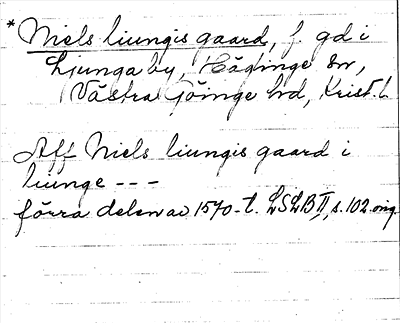 * Niels liungis gaard, f. gd i
Ljunga by, Häglinge sn,
Västra Göinge hd, Krist. l.
Aff Niels liungis gaard i
liunge - - -
förra delen av 1570-t. LSLB II, s. 102 orig.